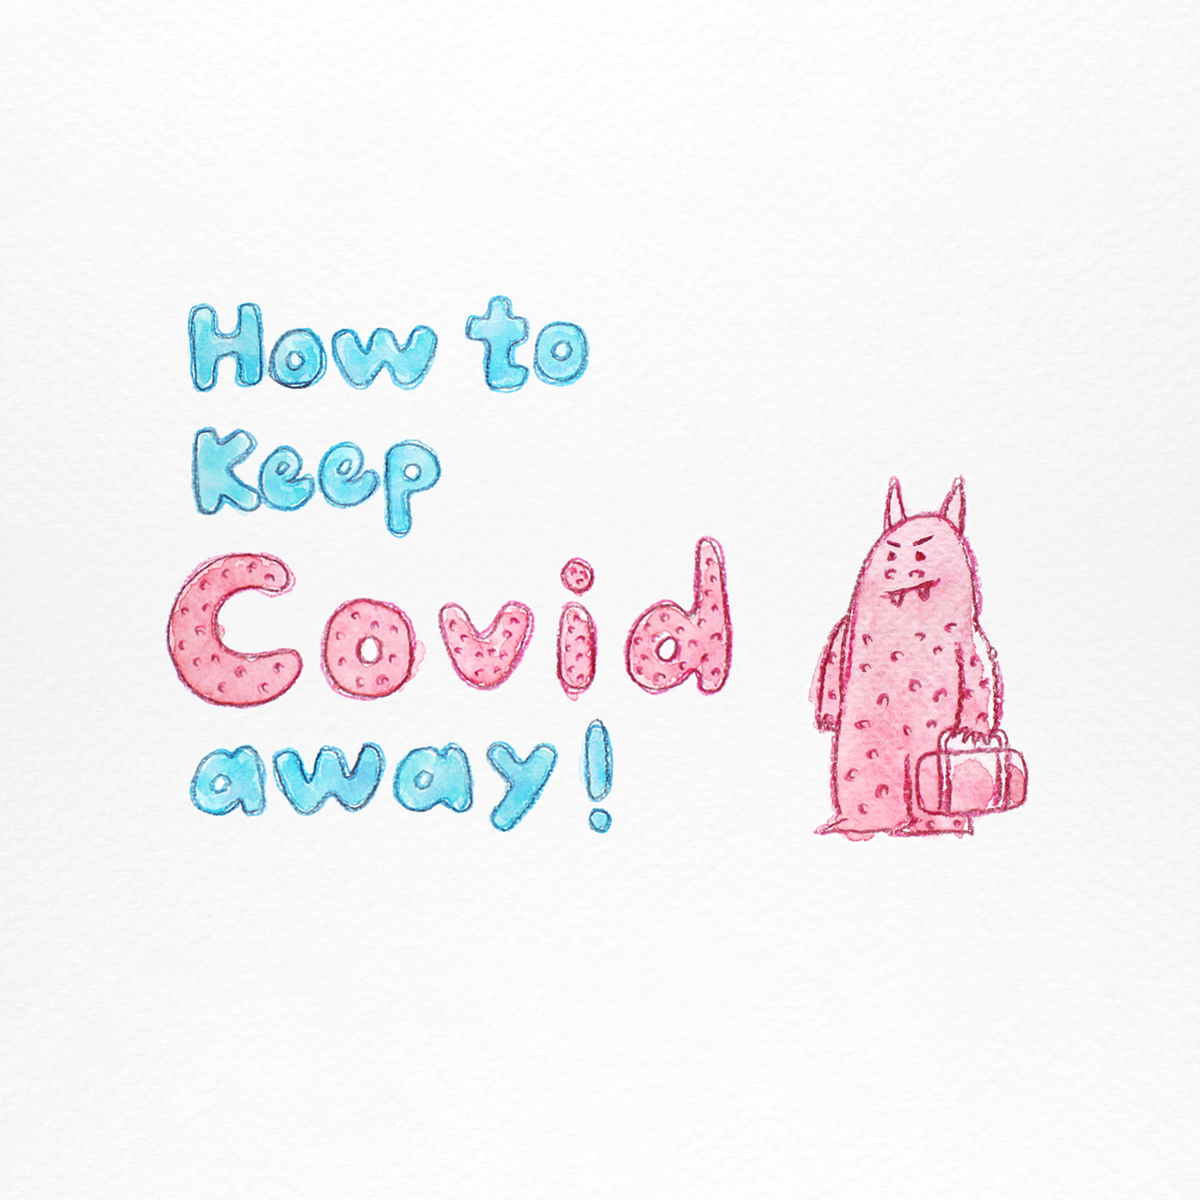 How to
Keep
Covid
away!